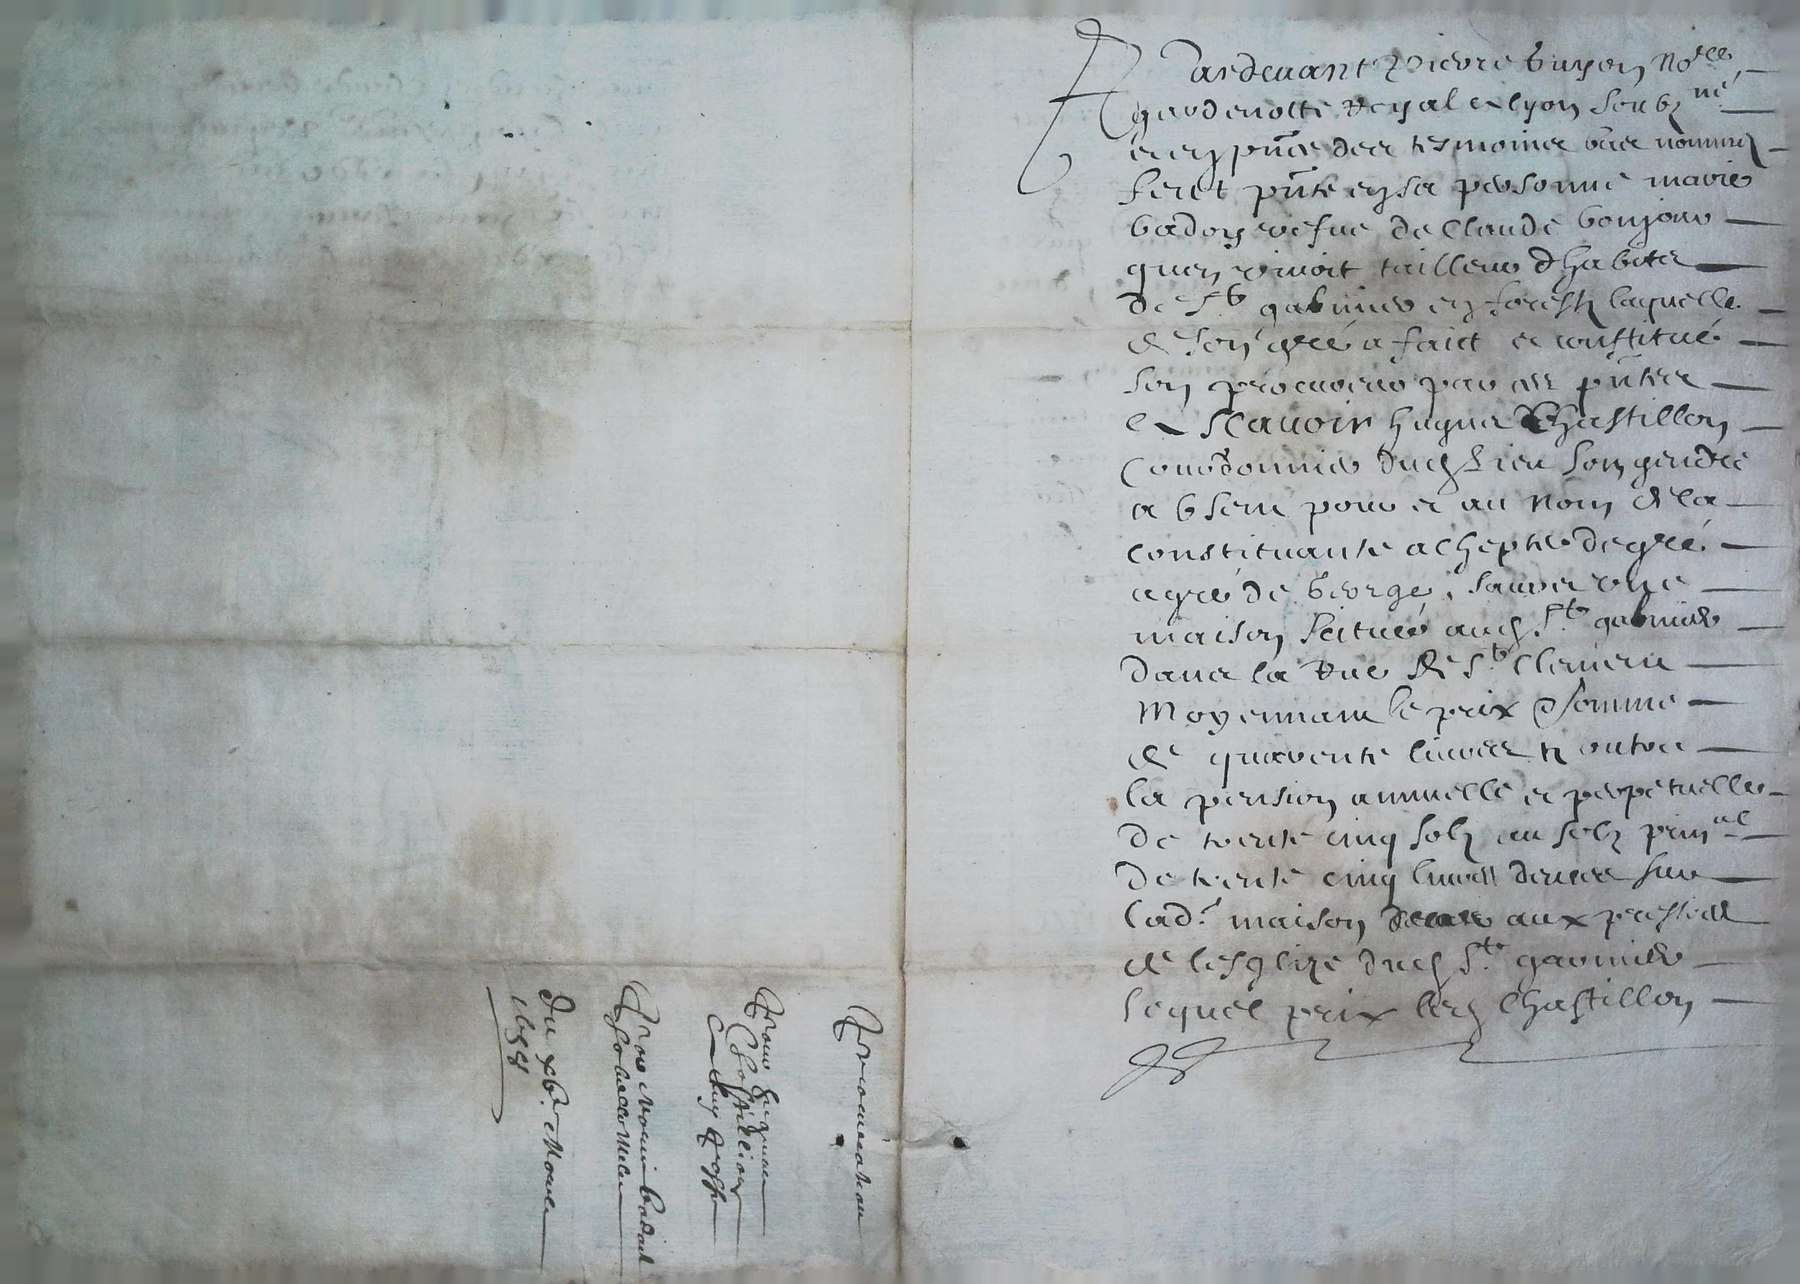 Pardevant Pierre Guyon No.re
gardenotte Royal a Lyon soubz.né
et en p̃nce des tesmoins bas nommez
serct p̃nte en sa personne marie
badon vefue de Claude bonjour
quen vivoit tailleur d'habits
de St gabmier en forestz laquelle
de son gré a faict et constitué
son procureur par ces p̃ntes
scavoir hugues Chastillon
Courdonnier dud lieu son gendre
absent pour et au nom de la
constituante achepter de gré
a gré de George. une
maison scitué aud St gabmier
dans la rue de St Clement
Moyennant le prix & somme
de quarente livres et outre
la pension annuelle et perpetuelle
de trente cinq solz au solz prin.al
de trente cinq livres deues sur
lad. maison aux prestres
de lesglize dud St. gaumier
lequel prix led Chastillon
Procuration
Pour hugues
Chastillon
Pour
Du xb.
1658